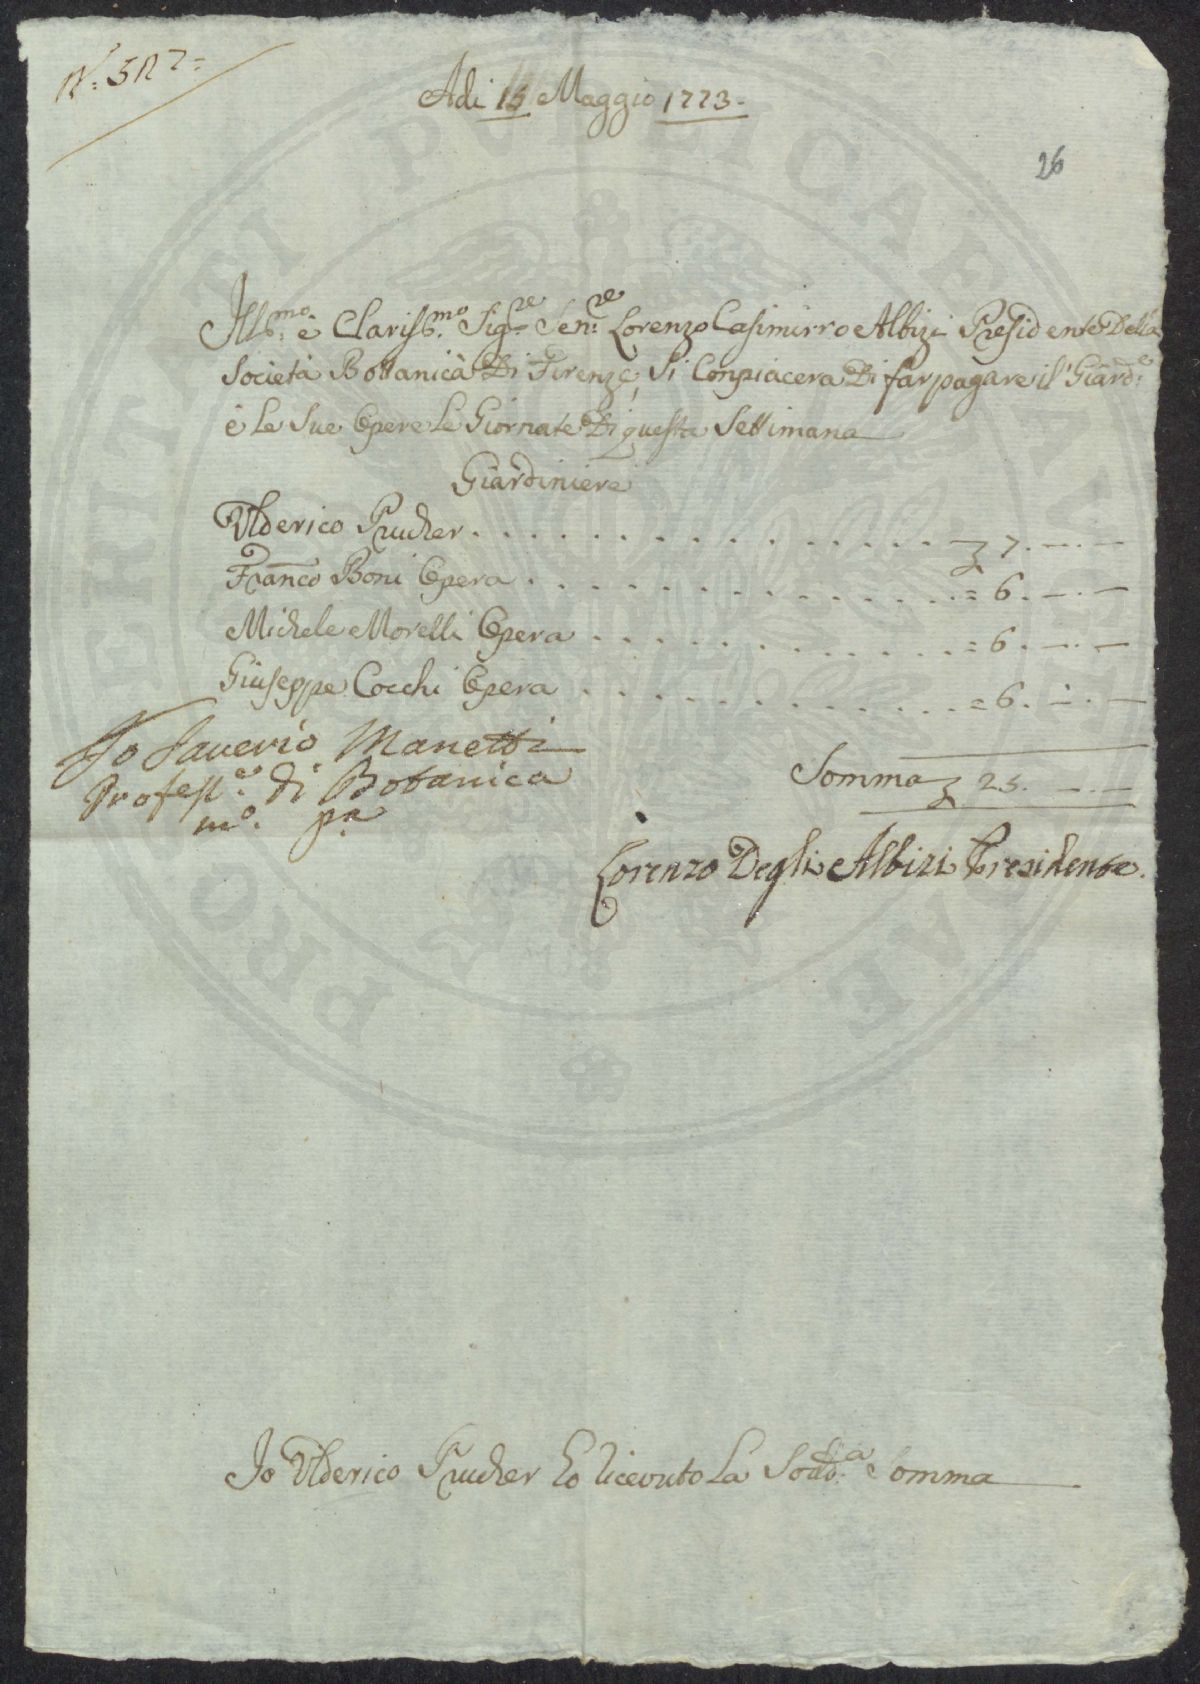 Adi 15 Maggio 1773.
26
Ill.mo è Clariss.mo Sig.re Sen.re Lorenzo Casimirro Albizi Presidente Della
Società Bottanicà Di Firenze, Si Conpiacera Di far pagare il Giard.e
è le Sue Opere le Giornate Di questa Settimana
Giardiniere
Ulderico Prucher . . . . . . . . . . . . . . . . 7. —.—
Franco Boni Opera . . . . . . . . . . . . . . = 6. —.—
Michele Morelli Opera . . . . . . . . . . . . = 6. —.—
Giuseppe Cocchi Opera . . . . . . . . . . . . = 6. —.—
Somma 25. —.—
Io Saverio Manetti
Profess.e di Botanica
m.o p.a
Lorenzo Degli Albizi Presidente.
Io Ulderico Prucher ho riceuto La Sodd.a Somma
PROSPERITATI PUBLICAE AUGENDAE